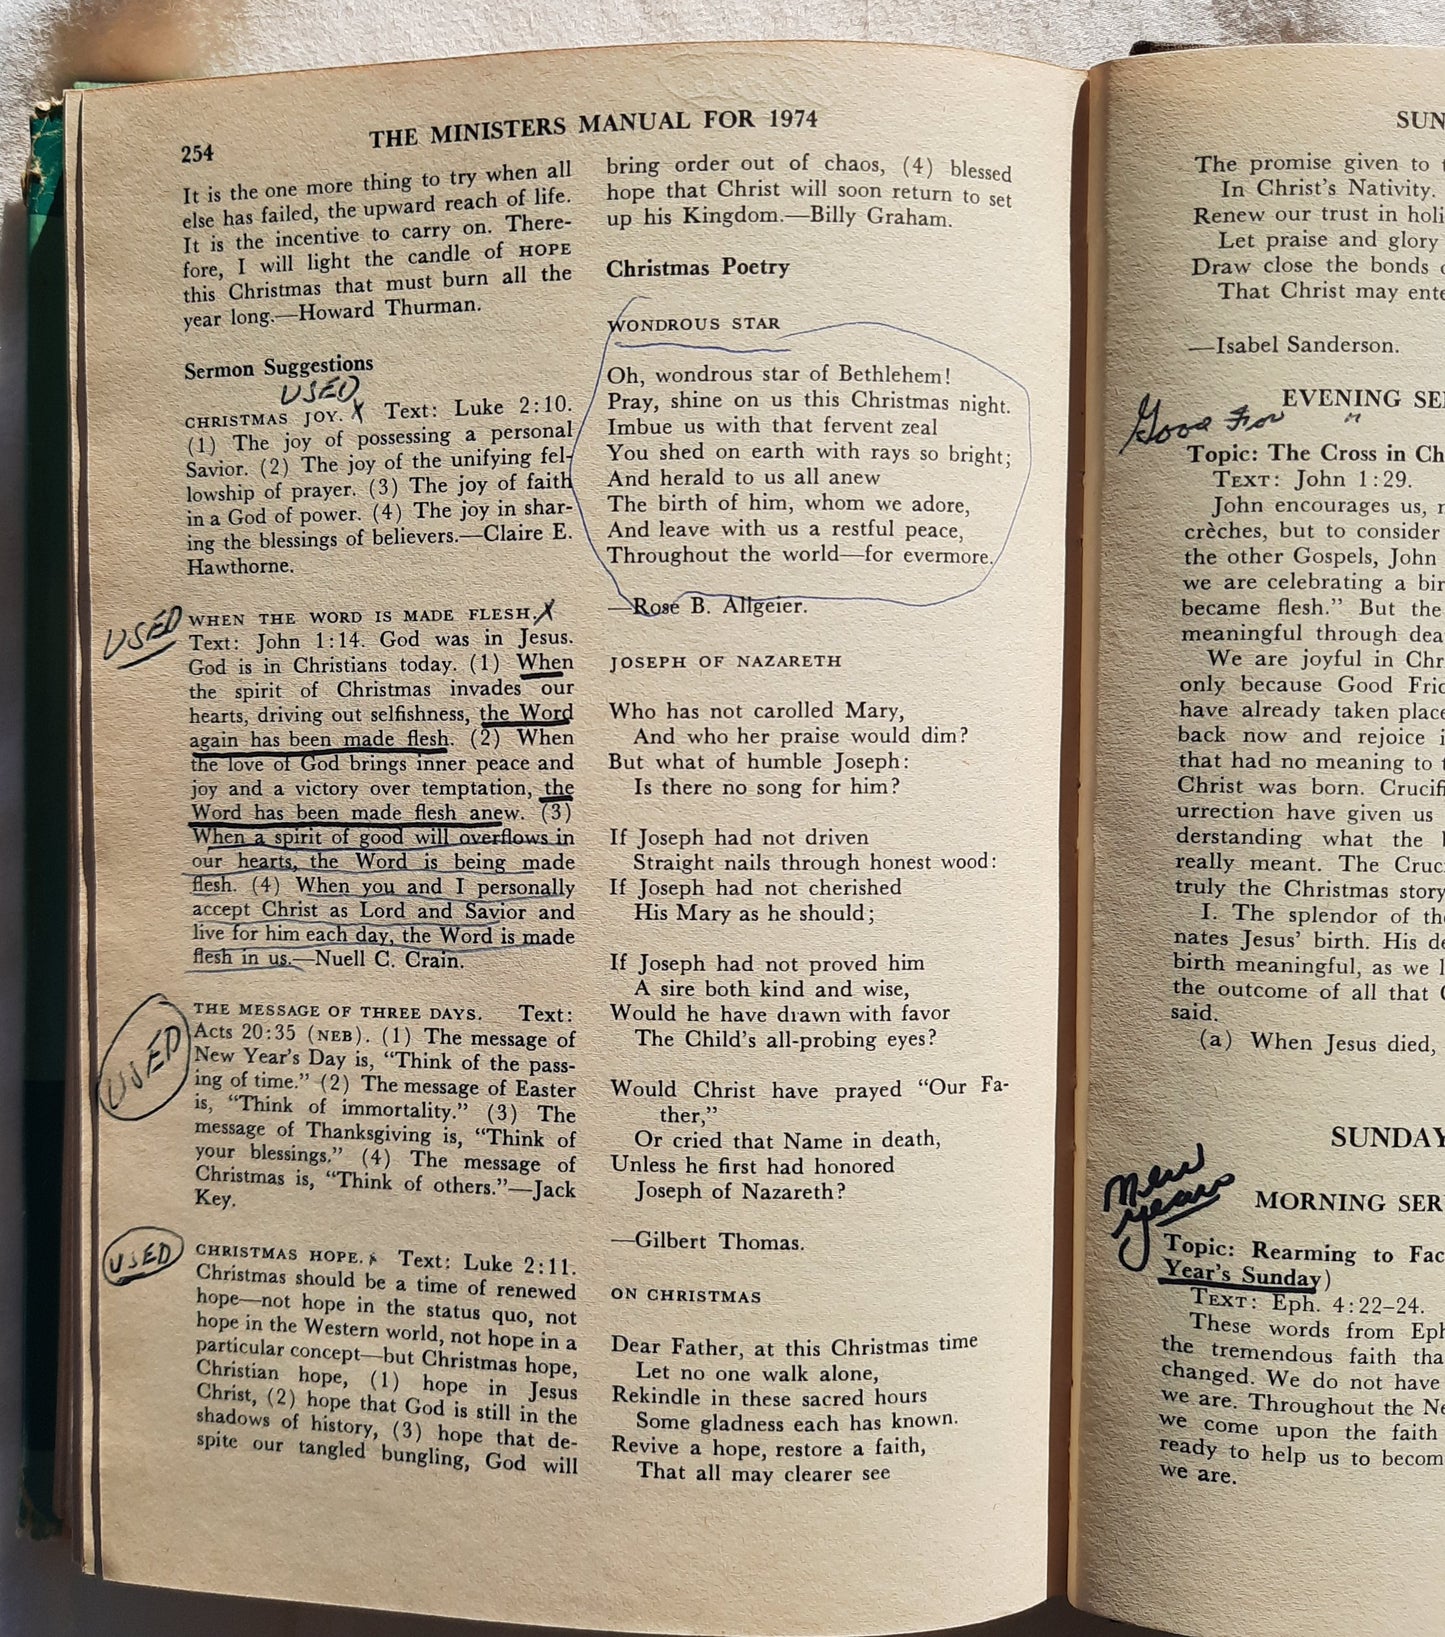 254
THE MINISTERS MANUAL FOR 1974
It is the one more thing to try when all
else has failed, the upward reach of life.
It is the incentive to carry on. There-
fore, I will light the candle of HOPE
this Christmas that must burn all the
year long.—Howard Thurman.
Sermon Suggestions
USED
CHRISTMAS JOY. X Text: Luke 2:10.
(1) The joy of possessing a personal
Savior. (2) The joy of the unifying fel-
lowship of prayer. (3) The joy of faith
in a God of power. (4) The joy in shar-
ing the blessings of believers.—Claire E.
Hawthorne.
USED
WHEN THE WORD IS MADE FLESH. X
Text: John 1:14. God was in Jesus.
God is in Christians today. (1) When
the spirit of Christmas invades our
hearts, driving out selfishness, the Word
again has been made flesh. (2) When
the love of God brings inner peace and
joy and a victory over temptation, the
Word has been made flesh anew. (3)
When a spirit of good will overflows in
our hearts, the Word is being made
flesh. (4) When you and I personally
accept Christ as Lord and Savior and
live for him each day, the Word is made
flesh in us.—Nuell C. Crain.
USED
THE MESSAGE OF THREE DAYS. Text:
Acts 20:35 (NEB). (1) The message of
New Year's Day is, "Think of the pass-
ing of time." (2) The message of Easter
is, "Think of immortality." (3) The
message of Thanksgiving is, "Think of
your blessings." (4) The message of
Christmas is, "Think of others."—Jack
Key.
USED
CHRISTMAS HOPE. x Text: Luke 2:11.
Christmas should be a time of renewed
hope—not hope in the status quo, not
hope in the Western world, not hope in a
particular concept—but Christmas hope,
Christian hope, (1) hope in Jesus
Christ, (2) hope that God is still in the
shadows of history, (3) hope that de-
spite our tangled bungling, God will
bring order out of chaos, (4) blessed
hope that Christ will soon return to set
up his Kingdom.—Billy Graham.
Christmas Poetry
WONDROUS STAR
Oh, wondrous star of Bethlehem!
Pray, shine on us this Christmas night.
Imbue us with that fervent zeal
You shed on earth with rays so bright;
And herald to us all anew
The birth of him, whom we adore,
And leave with us a restful peace,
Throughout the world—for evermore.
—Rose B. Allgeier.
JOSEPH OF NAZARETH
Who has not carolled Mary,
And who her praise would dim?
But what of humble Joseph:
Is there no song for him?
If Joseph had not driven
Straight nails through honest wood:
If Joseph had not cherished
His Mary as he should;
If Joseph had not proved him
A sire both kind and wise,
Would he have drawn with favor
The Child's all-probing eyes?
Would Christ have prayed "Our Fa-
ther,"
Or cried that Name in death,
Unless he first had honored
Joseph of Nazareth?
—Gilbert Thomas.
ON CHRISTMAS
Dear Father, at this Christmas time
Let no one walk alone,
Rekindle in these sacred hours
Some gladness each has known.
Revive a hope, restore a faith,
That all may clearer see
SUN
The promise given to
In Christ's Nativity.
Renew our trust in holi
Let praise and glory
Draw close the bonds
That Christ may ente
—Isabel Sanderson.
EVENING SE
Good For
Topic: The Cross in Ch
TEXT: John 1:29.
John encourages us,
crèches, but to consider
the other Gospels, John
we are celebrating a bir
became flesh." But the
meaningful through dea
We are joyful in Chr
only because Good Frid
have already taken place
back now and rejoice i
that had no meaning to
Christ was born. Crucifi
urrection have given us
derstanding what the
really meant. The Cruc
truly the Christmas story
I. The splendor of the
nates Jesus' birth. His de
birth meaningful, as we l
the outcome of all that
said.
(a) When Jesus died,
SUNDAY
New
Years
MORNING SER
Topic: Rearming to Fac
Year's Sunday)
TEXT: Eph. 4:22–24.
These words from Eph
the tremendous faith tha
changed. We do not have
we are. Throughout the Ne
we come upon the faith
ready to help us to becom
we are.